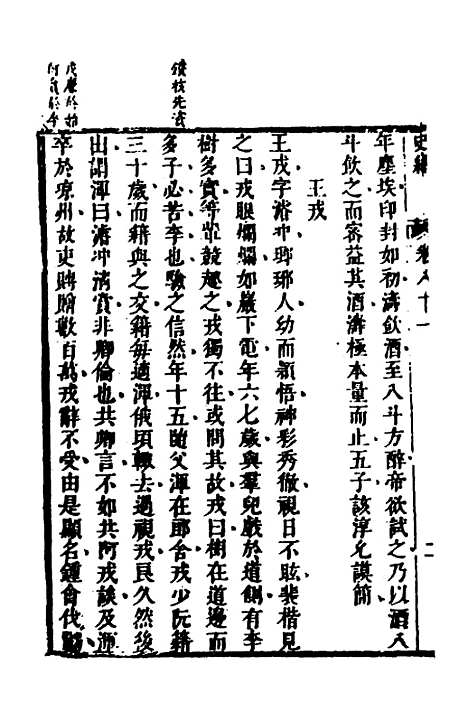 史纂　卷八十一　二
年塵埃印封如初濤飲酒至八斗方醉帝欲試之乃以酒八
斗飲之而密益其酒濤極本量而止五子該淳允謨簡
王戎
王戎字濬冲瑯琊人幼而頴悟神彩秀徹視日不眩裴楷見
之曰戎眼爛爛如巖下電年六七歲與羣兒戲於道側有李
樹多實等輩競趣之戎獨不往或問其故戎曰樹在道邊而
多子必苦李也驗之信然年十五隨父渾在郎舍戎少阮籍
三十歲而籍與之交籍每適渾俄頃輒去過視戎良久然後
出謂渾曰濬冲清賞非卿倫也共卿言不如共阿戎談及渾
卒於凉州故吏賻贈數百萬戎辭不受由是顯名鍾會伐蜀